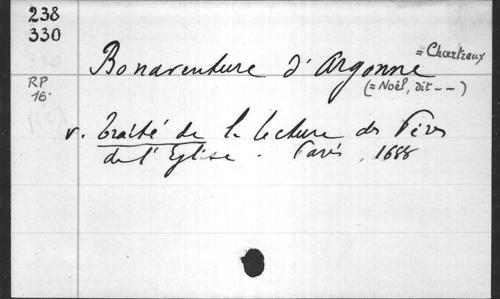 238
330
= Chartreux
Bonaventure d'Argonne
(= Noël, dit - - )
RP
16.
v. Traité de la lecture des Pères
de l'Eglise. Paris, 1688